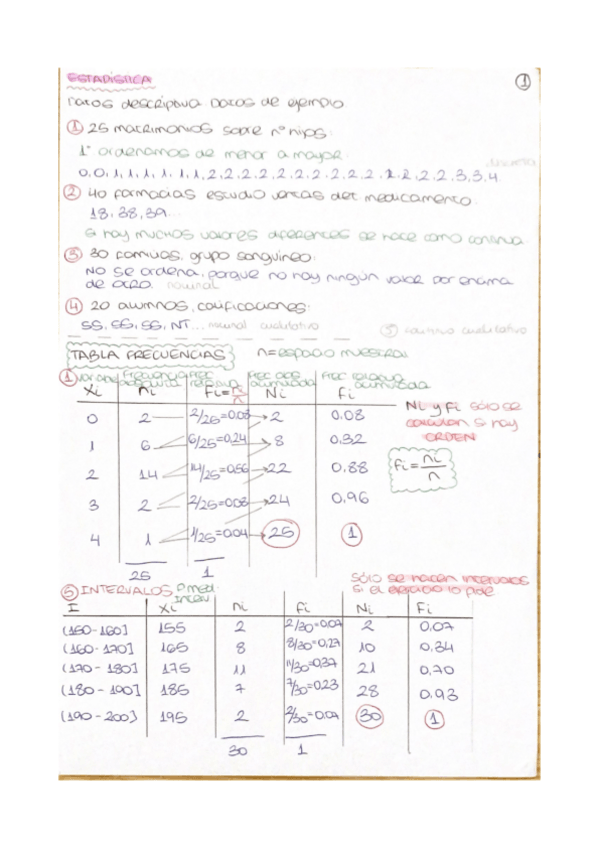 ESTADISTICA
1
Datos descriptiva Datos de ejemplo
1 25 matrimonios sobre nº hijos:
1º ordenamos de menor a mayor
discreta
0,0,1,1,1,1,1,1,2,2,2,2,2,2,2,2,2,2,2,2,2,2,3,3,4.
2 40 farmacias estudio ventas det. medicamento.
18, 38, 39...
si hay muchos valores diferentes se hace como continua.
3 30 familias, grupo sanguineo:
No se ordena, porque no hay ningún valor por encima
de otro. nominal
4 20 alumnos, calificaciones:
SS, SS, SS, NT... cualitativo
5 cualitativo
TABLA FRECUENCIAS n=espacio muestral
1 Frecuencia absoluta Frec relativa Frec abs acumulada Frec relativa acumulada
Xi ni fi=ni/n Ni Fi
0 2 2/25=0,08 2 0,08
1 6 6/25=0,24 8 0,32
2 14 14/25=0,56 22 0,88
3 2 2/25=0,08 24 0,96
4 1 1/25=0,04 25 1
25 1
Ni y Fi sólo se
calculan si hay
ORDEN
fi=ni/n
5 INTERVALOS P.med. Interv
Sólo se hacen intervalos
si el ejercicio lo pide
I Xi ni fi Ni Fi
(150-160] 155 2 2/30=0,07 2 0,07
(160-170] 165 8 8/30=0,27 10 0,34
(170-180] 175 11 11/30=0,37 21 0,70
(180-190] 185 7 7/30=0,23 28 0,93
(190-200] 195 2 2/30=0,07 30 1
30 1